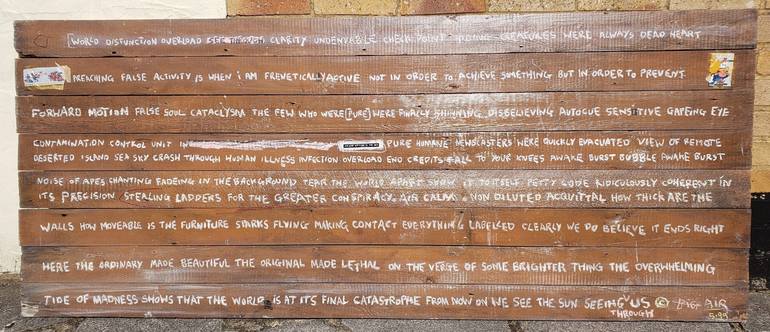 [WORLD DISFUNCTION OVERLOAD SEE THROUGH CLARITY UNDENYABLE CHECK POINT HIDING CREATURES WERE ALWAYS DEAD HEART
PREACHING FALSE ACTIVITY IS WHEN I AM FRENETICALLY ACTIVE NOT IN ORDER TO ACHIEVE SOMETHING BUT IN ORDER TO PREVENT
FORWARD MOTION FALSE SOUL CATACLYSM THE FEW WHO WERE [PURE] WERE FINALLY SHINNING DISBELIEVING AUTOCUE SENSITIVE GAPEING EYE
CONTAMINATION CONTROL UNIT IN PURE HUMANE NEWSCASTERS WERE QUICKLY EVACUATED VIEW OF REMOTE
DESERTED ISLAND SEA SKY CRASH THROUGH HUMAN ILLNESS INFECTION OVERLOAD END CREDITS FALL TO YOUR KNEES AWAKE BURST BUBBLE AWAKE BURST
NOISE OF APES CHANTING FADEING IN THE BACKGROUND TEAR THE WORLD APART SHOW IT TO ITSELF PETTY CODE RIDICULOUSLY COHERENT IN
ITS PRECISION STEALING LADDERS FOR THE GREATER CONSPIRACY AIR CALM NON DILUTED ACQUITTAL HOW THICK ARE THE
WALLS HOW MOVEABLE IS THE FURNITURE SPARKS FLYING MAKING CONTACT EVERYTHING LABELLED CLEARLY WE DO BELIEVE IT ENDS RIGHT
HERE THE ORDINARY MADE BEAUTIFUL THE ORIGINAL MADE LETHAL ON THE VERGE OF SOME BRIGHTER THING THE OVERWHELMING
TIDE OF MADNESS SHOWS THAT THE WORLD IS AT ITS FINAL CATASTROPHE FROM NOW ON WE SEE THE SUN SEEING THROUGH US © BIG AIR
5.99